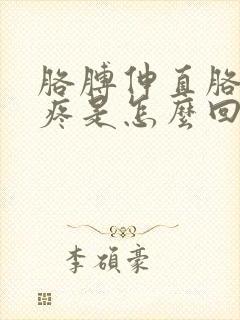 胳膊伸直胳
疼是怎麼回
李碩豪